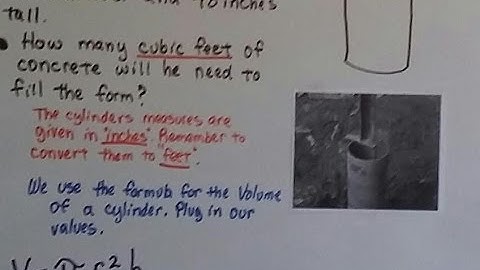 and 48 inches
tall.
• How many cubic feet of
concrete will he need to
fill the form?
The cylinders measures are
given in "inches". Remember to
convert them to "feet".
We use the formula for the Volume
of a cylinder. Plug in our
values.
V = π r² h